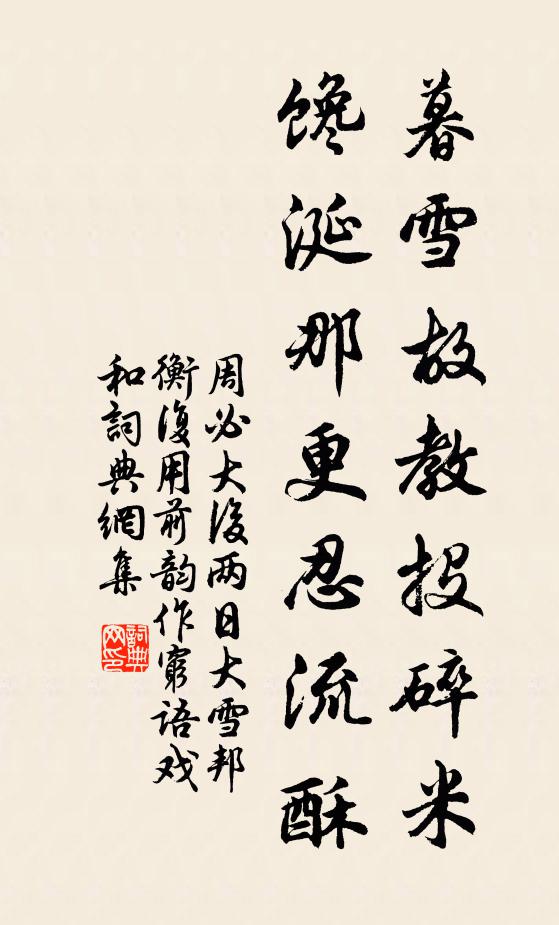 暮雪故教投碎米
馋涎那更忍流酥
周必大後两日大雪邦
衡復用前韵作窮語戏
和詞典網集
詞典网印